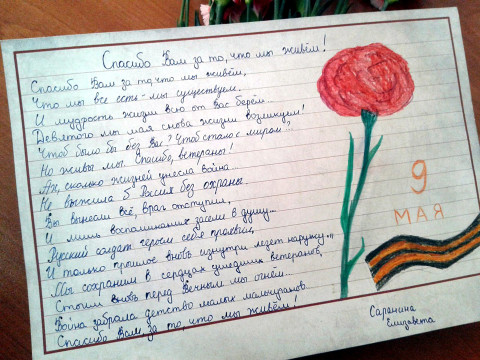 Спасибо Вам за то, что мы живём!
Спасибо Вам за то, что мы живём,
Что мы все есть - мы существуем.
И мудрость жизни всю от вас берём...
Девятого мы мая снова жизни возликуем!
Чтоб было бы без Вас? Чтоб стало с миром?..
Но живы мы. Спасибо, ветераны!
Ах, сколько жизней унесла война
Не выжила б Россия без охраны.
Вы вынесли всё, враг отступил,
И лишь воспоминания засели в душу...
Русский солдат героем себя проявил,
И только прошлое вновь изнутри лезет наружу...
Мы сохраним в сердцах ушедших ветеранов,
Стоим вновь перед Вечным мы огнём.
Война забрала детство малых мальчуганов
Спасибо Вам, за то, что мы живём!
9
МАЯ
Саранина
Елизавета